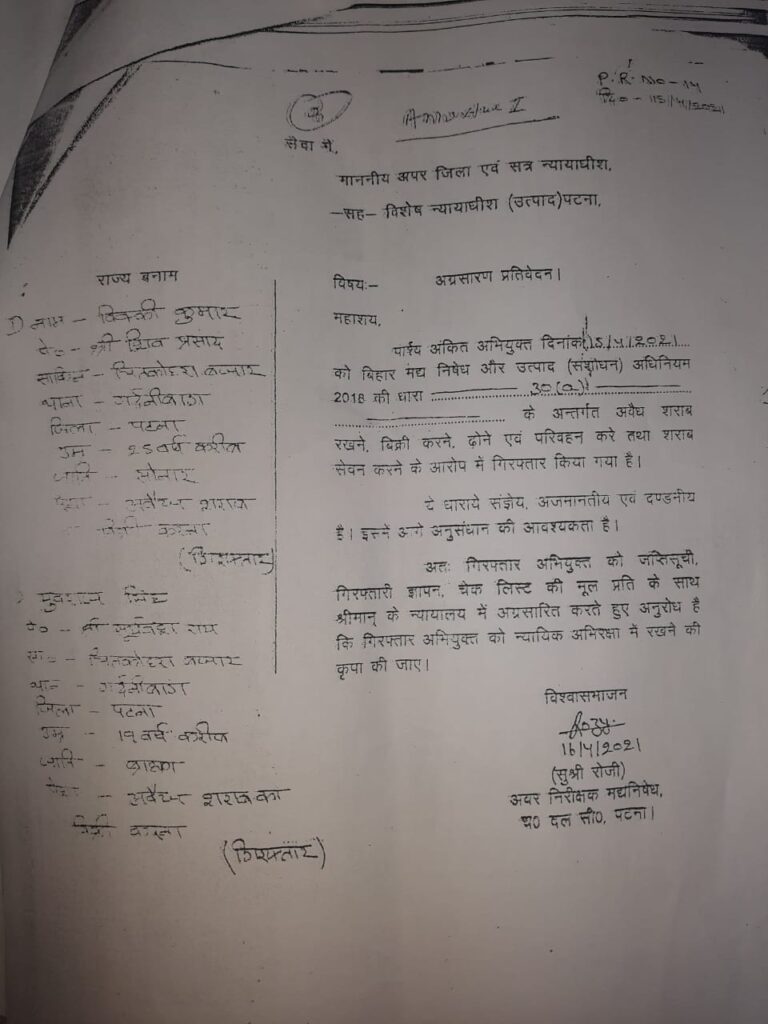 P.R. No - 14
दि० - 15/4/2021
Annexure I
सेवा में,
माननीय अपर जिला एवं सत्र न्यायाधीश,
-सह- विशेष न्यायाधीश (उत्पाद)पटना,
राज्य बनाम
1) नाम - विक्की कुमार
पे० - श्री शिव प्रसाद
साकिन - चितकोहरा बाजार
थाना - गर्दनीबाग
जिला - पटना
उम्र - 25 वर्ष करीब
जाति - सोनार
पेशा - अवैध शराब
बिक्री करना
(गिरफ्तार)
सिंह
पे० - श्री राय
सा० - चितकोहरा बाजार
था० - गर्दनीबाग
जिला - पटना
उम्र - 19 वर्ष करीब
जाति -
पेशा - अवैध शराब का
बिक्री करना
(गिरफ्तार)
विषय:- अग्रसारण प्रतिवेदन।
महाशय,
पार्श्य अंकित अभियुक्त दिनांक 15/4/2021
को बिहार मद्य निषेध और उत्पाद (संशोधन) अधिनियम
2018 की धारा 30(a)
के अन्तर्गत अवैध शराब
रखने, बिक्री करने, ढ़ोने एवं परिवहन करे तथा शराब
सेवन करने के आरोप में गिरफ्तार किया गया है।
ये धाराये संज्ञेय, अजमानतीय एवं दण्डनीय
है। इसमें आगे अनुसंधान की आवश्यकता है।
अतः गिरफ्तार अभियुक्त को जप्तिसूची,
गिरफ्तारी ज्ञापन, चेक लिस्ट की मूल प्रति के साथ
श्रीमान् के न्यायालय में अग्रसारित करते हुए अनुरोध है
कि गिरफ्तार अभियुक्त को न्यायिक अभिरक्षा में रखने की
कृपा की जाए।
विश्वासभाजन
Rozy
16/4/2021
(सुश्री रोजी)
अवर निरीक्षक मद्यनिषेध,
घ0 दल सी0, पटना।